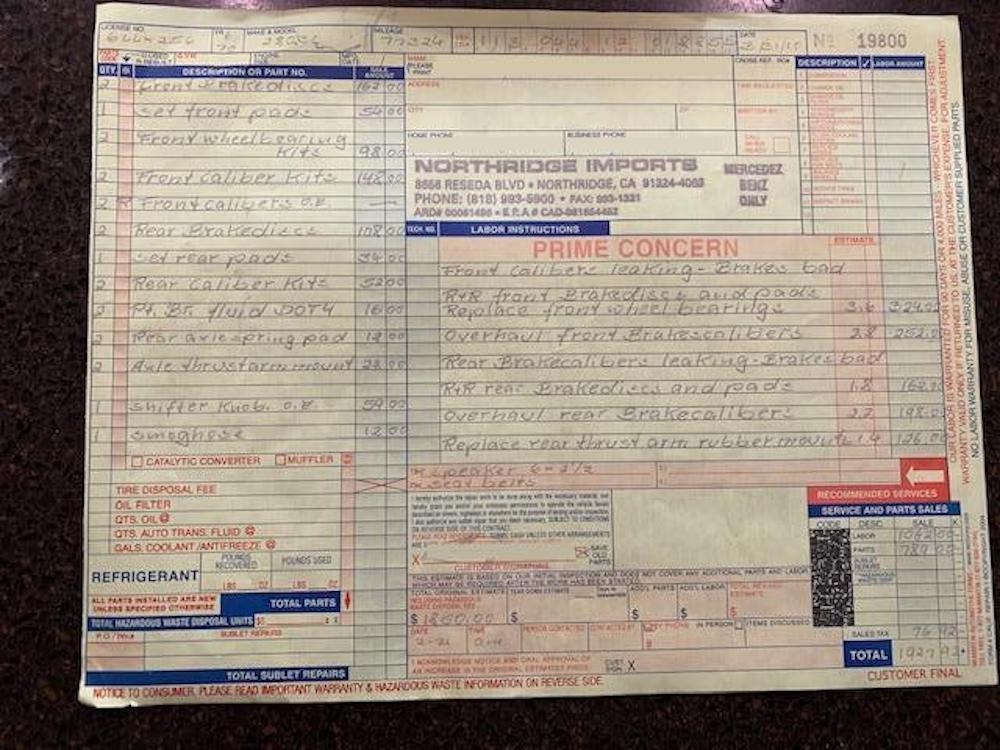 LICENSE NO.
YR.
MAKE & MODEL
280SL
MILEAGE
77324
DATE
No 19800
QTY.
DESCRIPTION OR PART NO.
SALE AMOUNT
2 Front Brakediscs 162 00
1 set front pads 54 00
2 Front wheelbearing
Kits 98 00
2 Front Caliber Kits 148 00
2 R Front calibers O.E. —
2 Rear Brakediscs 108 00
1 set rear pads 54 00
2 Rear Caliber Kits 52 00
2 Pt. Br. fluid DOT4 16 00
2 Rear axle spring pad 12 00
2 Axle thrust arm mount 28 00
1 Shifter Knob. O.E. 59 00
1 smoghose 12 00
CATALYTIC CONVERTER MUFFLER
TIRE DISPOSAL FEE
OIL FILTER
QTS. OIL @
QTS. AUTO TRANS. FLUID @
GALS. COOLANT / ANTIFREEZE @
REFRIGERANT
POUNDS RECOVERED
POUNDS USED
LBS OZ LBS OZ
ALL PARTS INSTALLED ARE NEW
UNLESS SPECIFIED OTHERWISE
TOTAL PARTS
TOTAL HAZARDOUS WASTE DISPOSAL UNITS
P.O./Inv.#
SUBLET REPAIRS
TOTAL SUBLET REPAIRS
NOTICE TO CONSUMER. PLEASE READ IMPORTANT WARRANTY & HAZARDOUS WASTE INFORMATION ON REVERSE SIDE.
NAME
PLEASE PRINT
ADDRESS
CITY
ZIP
HOME PHONE
BUSINESS PHONE
CROSS REF. RO#
TIME REQUESTED
WRITTEN BY
CALL WHEN READY
DESCRIPTION
LABOR AMOUNT
NORTHRIDGE IMPORTS
8656 RESEDA BLVD • NORTHRIDGE, CA 91324-4003
PHONE: (818) 993-5900 • FAX: 993-1321
MERCEDEZ
BENZ
ONLY
TECH. NO.
LABOR INSTRUCTIONS
PRIME CONCERN
ESTIMATE
Front calibers leaking - Brakes bad
R+R front Brakediscs and pads
Replace front wheel bearings 3.6 324.00
Overhaul front Brakescalibers 2.8 252.0
Rear Brakecalibers leaking - Brakes bad
R+R rear Brakediscs and pads 1.8 162.0
Overhaul rear Brakecalibers 2.2 198.0
Replace rear thrust arm rubber mounts 1.4 126.00
speaker 6-1/2
seat belts
RECOMMENDED SERVICES
SERVICE AND PARTS SALES
CODE DESC. SALE
LABOR 1062 00
PARTS 789 00
SUBLET REPAIRS
SALES TAX 76 92
TOTAL 1927 92
CUSTOMER FINAL
X
CUSTOMER SIGNATURE
SAVE OLD PARTS
THIS ESTIMATE IS BASED ON OUR INITIAL INSPECTION AND DOES NOT COVER ANY ADDITIONAL PARTS AND LABOR
WHICH MAY BE REQUIRED AFTER THE WORK HAS BEEN STARTED.
TOTAL ORIGINAL ESTIMATE
ADD'L PARTS
ADD'L LABOR
TOTAL REVISED ESTIMATE
$ 1860.00 $ $ $
DATE
TIME
PERSON CONTACTED
CONTACTED BY
BY PHONE
IN PERSON
ITEMS DISCUSSED
I ACKNOWLEDGE NOTICE AND ORAL APPROVAL OF
AN INCREASE IN THE ORIGINAL ESTIMATED PRICE
X
OUR LABOR IS WARRANTED FOR 90 DAYS OR 4,000 MILES - WHICHEVER COMES FIRST.
WARRANTY VALID ONLY IF RETURNED TO US, AT THE CUSTOMER'S EXPENSE, FOR ADJUSTMENT.
NO LABOR WARRANTY FOR MISUSE, ABUSE OR CUSTOMER SUPPLIED PARTS.